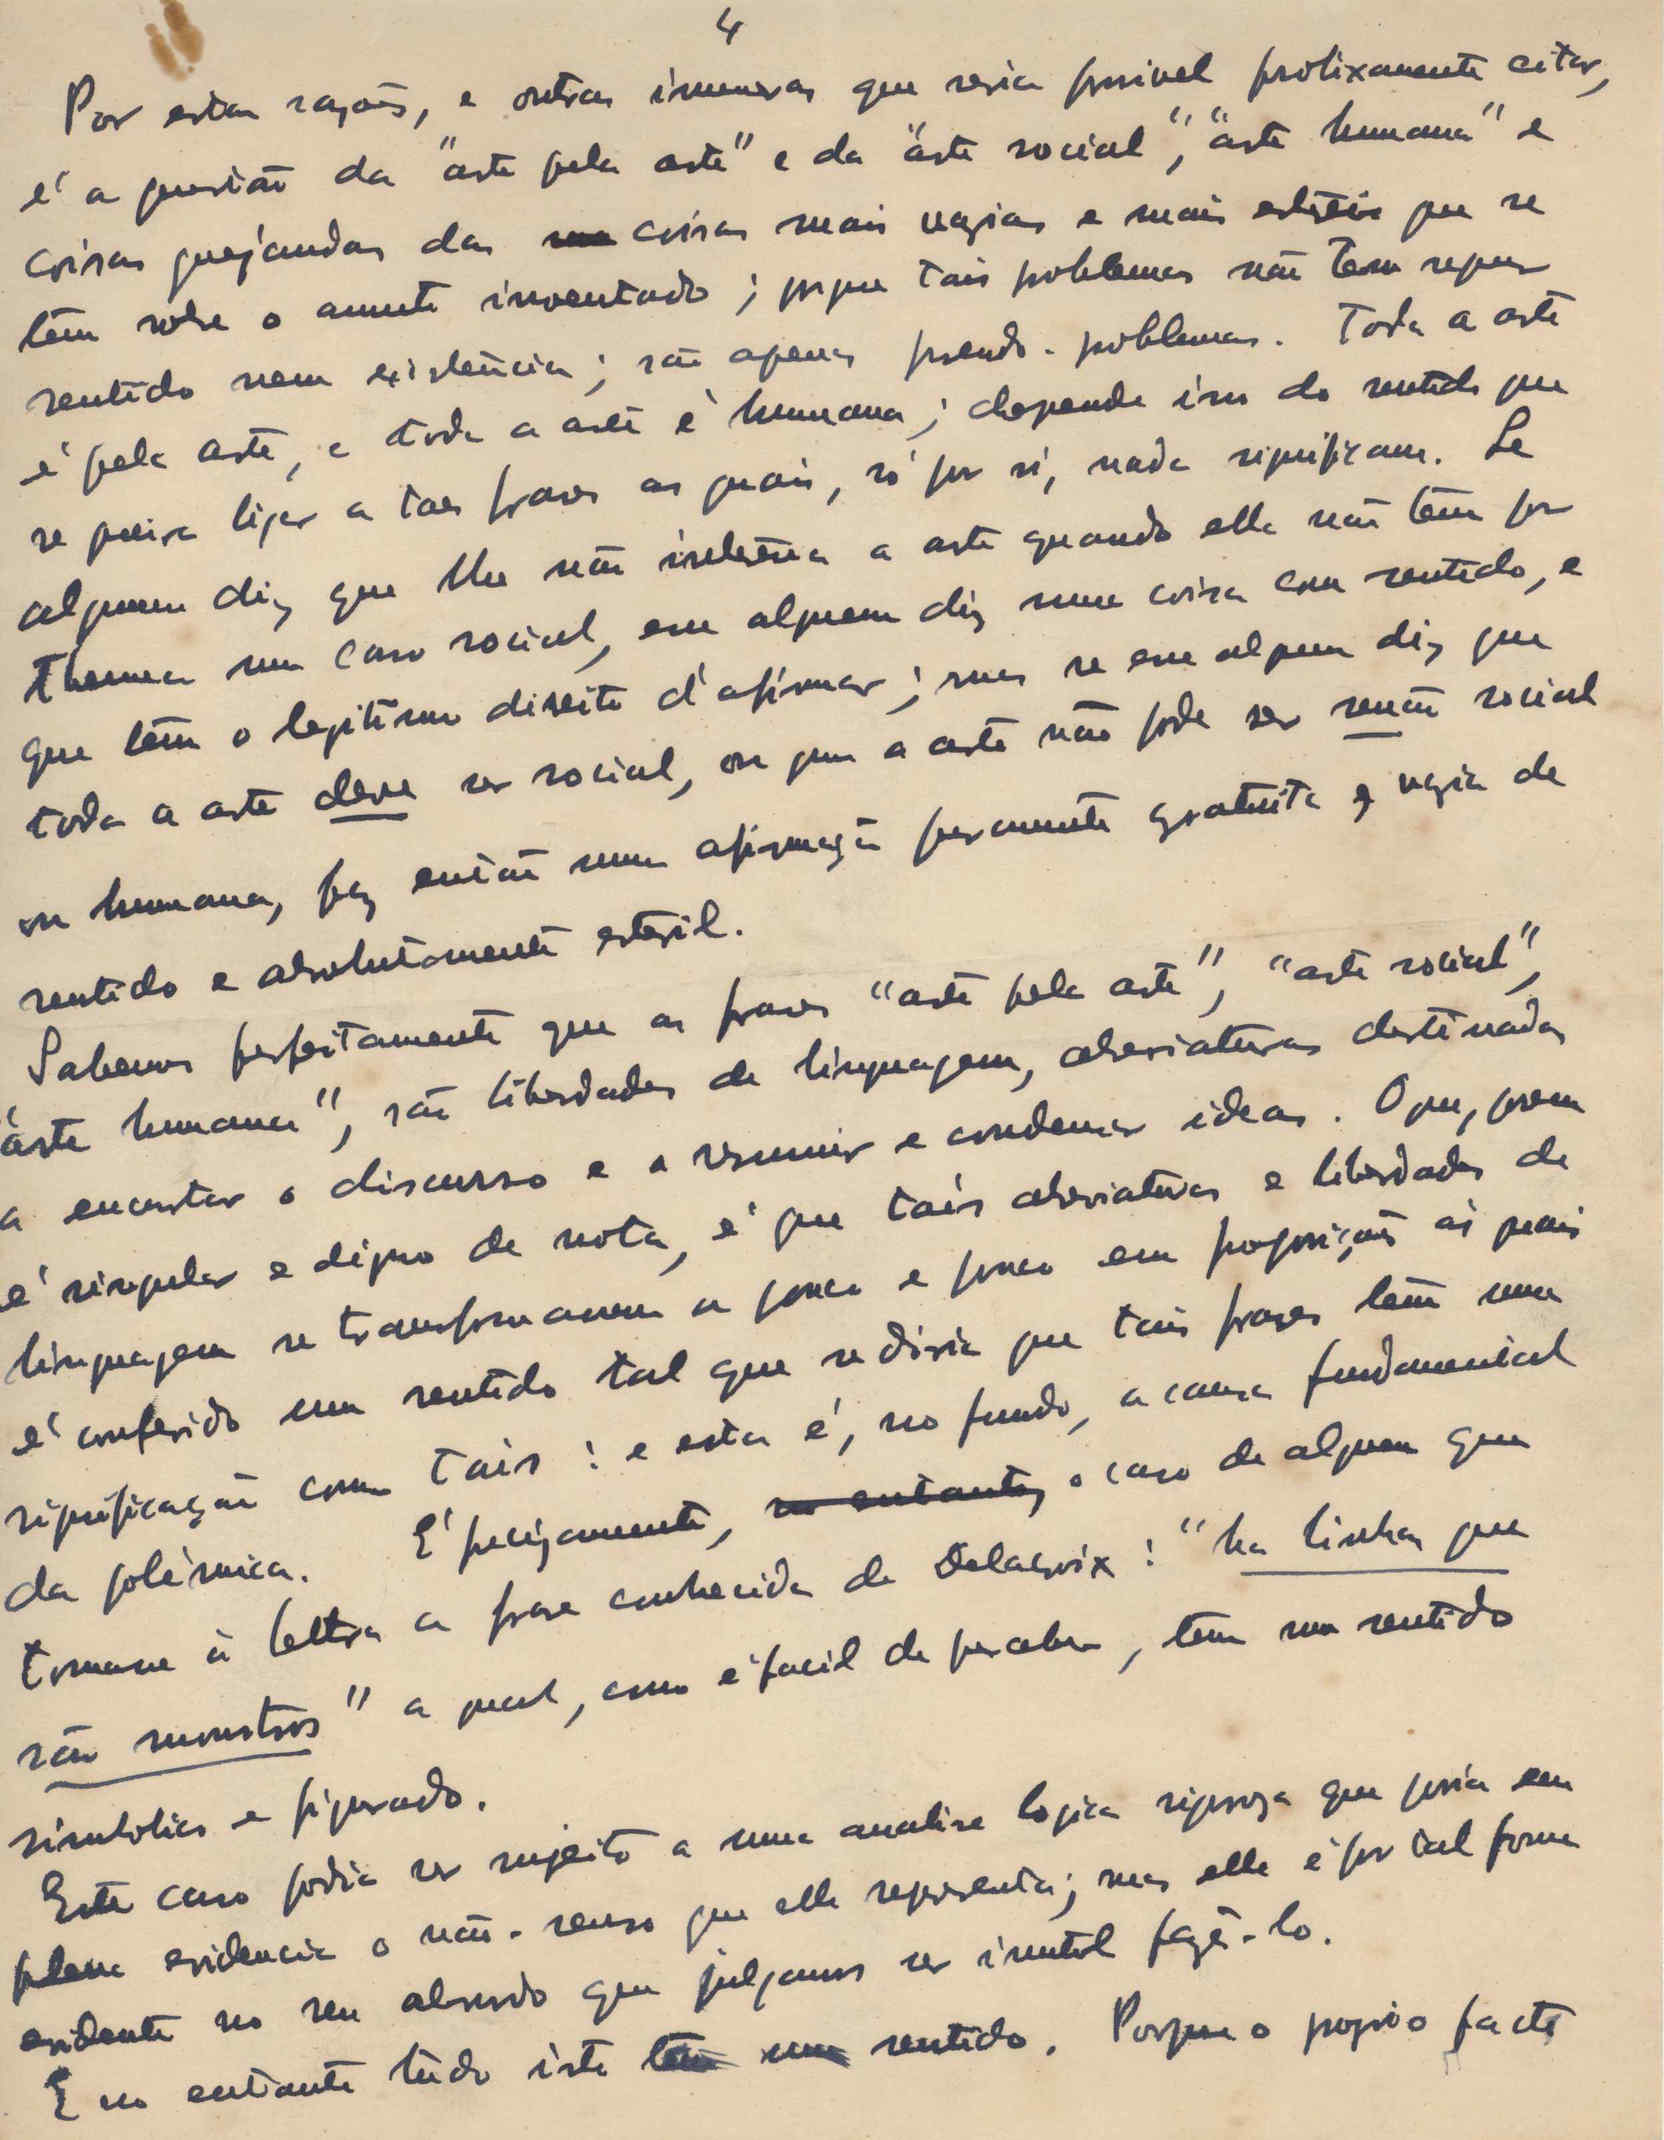 4
Por estas razões, e outras inumeras que seria possivel prolixamente citar,
é a questão da "arte pela arte" e da "arte social", "arte humana" e
coisas quejandas das coisas mais vazias e mais estéreis que se
têm sobre o assunto inventado; porque tais problemas não tem sequer
sentido nem existência; são apenas pseudo-problemas. Toda a arte
é pela arte, e toda a arte é humana; depende isso do sentido que
se queira ligar a taes frases as quais, só por si, nada significam. Se
alguem diz que lhe não interessa a arte quando ella não têm por
thema um caso social, esse alguem diz uma coisa com sentido, e
que têm o legitimo direito d'afirmar; mas se esse alguem diz que
toda a arte deve ser social, ou que a arte não pode ser senão social
ou humana, faz então uma afirmação puramente gratuita e vazia de
sentido e absolutamente esteril.
Sabemos perfeitamente que as frases "arte pela arte", "arte social",
"arte humana", são liberdades de linguagem, abreviaturas destinadas
a encurtar o discurso e a resumir e condensar ideas. O que, porem
é singular e digno de nota, é que tais abreviaturas e liberdades de
linguagem se transformassem a pouco e pouco em proposições ás quais
é conferido um sentido tal que se diria que tais frases têm uma
significação como tais: e esta é, no fundo, a causa fundamental
da polémica. É precizamente, no entanto, o caso de alguem que
tomasse á lettra a frase conhecida de Delacroix: "ha linhas que
são monstros" a qual, como é facil de perceber, tem um sentido
simbolico e figurado.
Este caso podia ser sujeito a uma analise logica rigoroza que poria em
plena evidencia o não-senso que elle representa; mas elle é por tal forma
evidente no seu absurdo que julgamos ser inutil fazê-lo.
E no entanto tudo isto têm um sentido. Porque o proprio facto